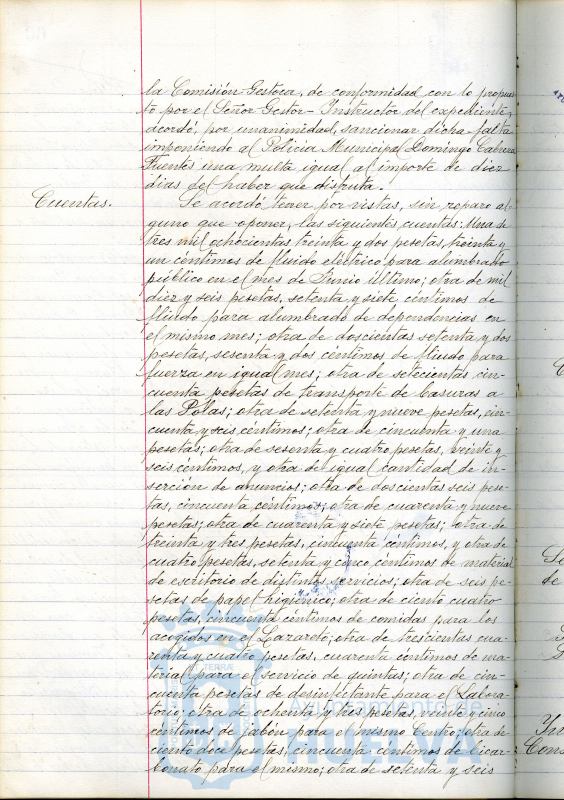 la Comisión Gestora, de conformidad con lo propues-
to por el Señor Gestor-Instructor del expediente,
acordó, por unanimidad, sancionar dicha falta
imponiendo al Policía Municipal Domingo Cabrera
Fuentes una multa igual al importe de diez
días del haber que disfruta.
Cuentas.
Se acordó tener por vistas, sin reparo al-
guno que oponer, las siguientes cuentas: Una de
tres mil ochocientas treinta y dos pesetas, treinta y
un céntimos de fluido eléctrico para alumbrado
público en el mes de Junio último; otra de mil
diez y seis pesetas, setenta y siete céntimos de
fluido para alumbrado de dependencias en
el mismo mes; otra de doscientas setenta y dos
pesetas, sesenta y dos céntimos de fluido para
fuerza en igual mes; otra de setecientas cin-
cuenta pesetas de transporte de basuras a
las Pollas; otra de setenta y nueve pesetas, cin-
cuenta y seis céntimos; otra de cincuenta y una
pesetas; otra de sesenta y cuatro pesetas, veinte y
seis céntimos, y otra de igual cantidad de in-
serción de anuncios; otra de doscientas seis pese-
tas, cincuenta céntimos; otra de cuarenta y nueve
pesetas; otra de cuarenta y siete pesetas; otra de
treinta y tres pesetas, cincuenta céntimos, y otra de
cuatro pesetas, setenta y cinco céntimos de material
de escritorio de distintos servicios; otra de seis pe-
setas de papel higiénico; otra de ciento cuatro
pesetas, cincuenta céntimos de comidas para los
acogidos en el Lazareto; otra de trescientas cua-
renta y cuatro pesetas, cuarenta céntimos de ma-
terial para el servicio de quintas; otra de cin-
cuenta pesetas de desinfectante para el Labora-
torio; otra de ochenta y tres pesetas, veinte y cinco
céntimos de jabón para el mismo Centro; otra de
ciento doce pesetas, cincuenta céntimos de bicar-
bonato para el mismo; otra de setenta y seis
TERRÆ
Ayuntamiento de
HUELVA